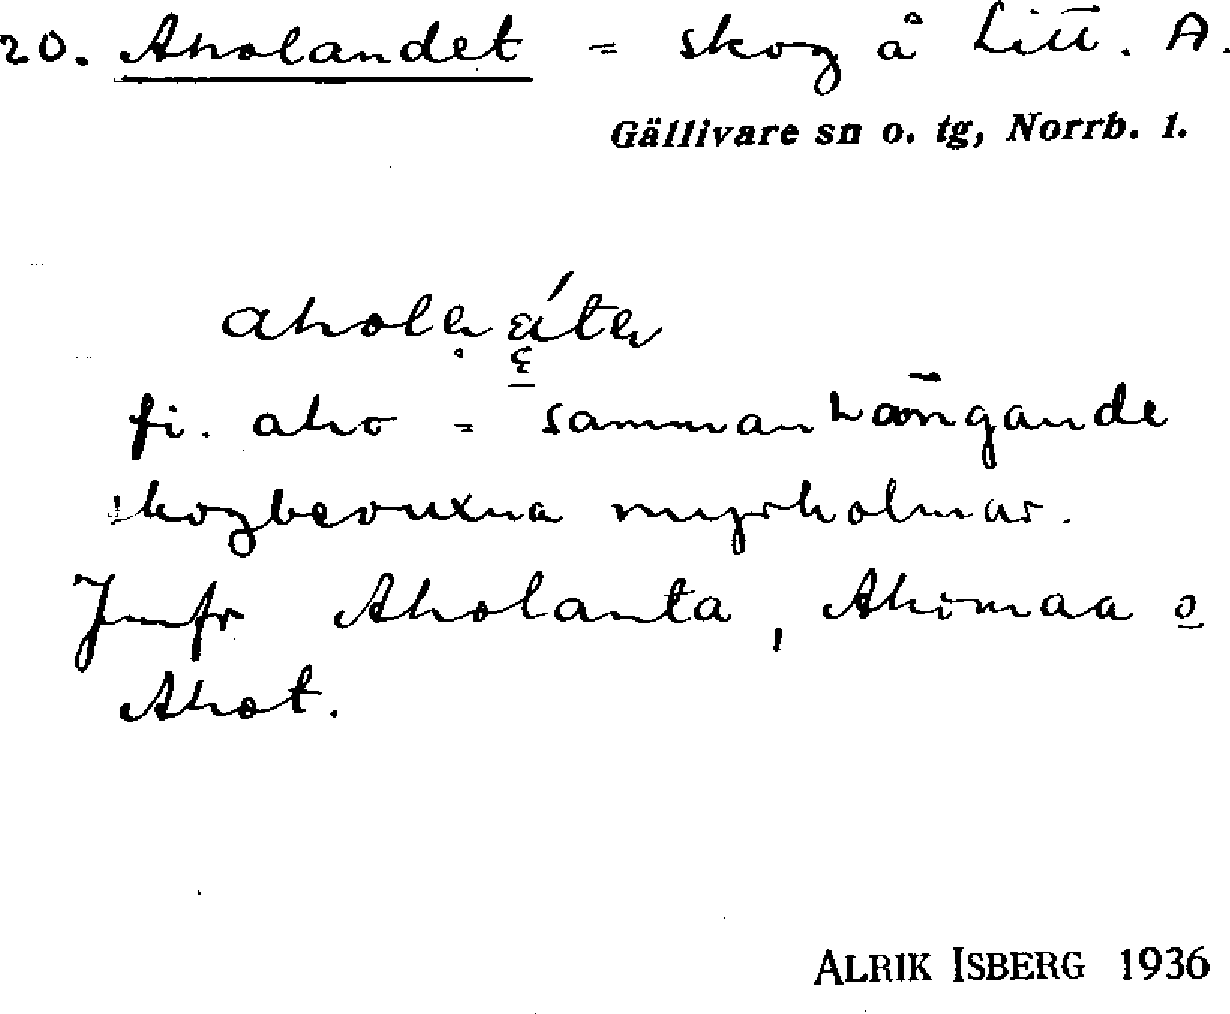 20. Aholandet = skog å Litt. A.
Gällivare sn o. tg, Norrb. l.
fi. aho = sammanhängande
skogbevuxna myrholmar.
Jmfr Aholanta, Ahomaa o
Ahot.
ALRIK ISBERG 1936